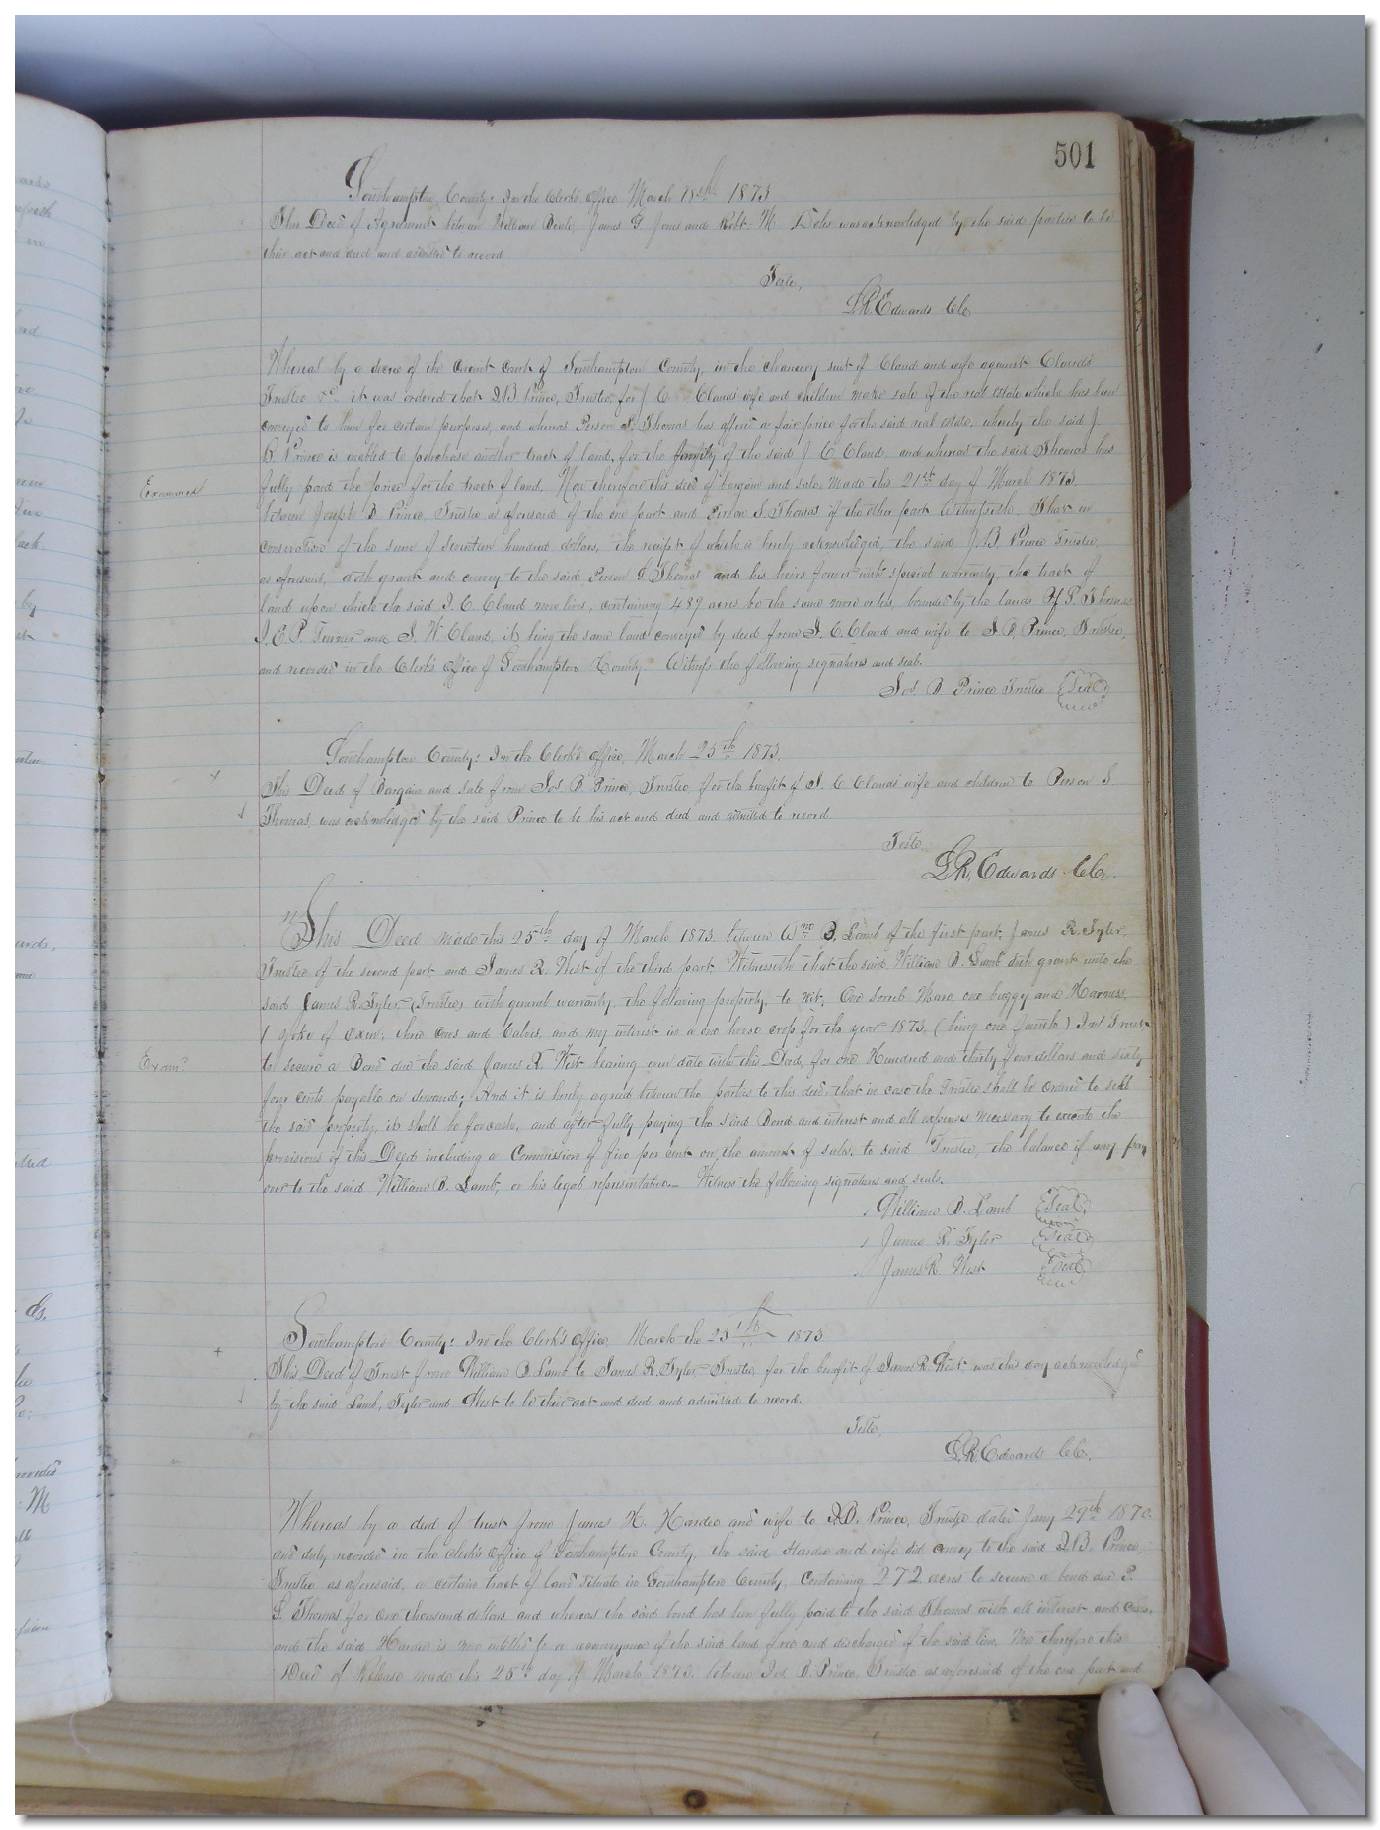 501
Southampton County: In the Clerk's Office March 18th 1873
This Deed of Agreement between William Beale, James G Jones and Robt. M was acknowledged by the said parties to be
their act and deed and admitted to record
Teste,
L.R. Edwards CCo
Whereas by a decree of the circuit court of Southampton County, in the chancery suit of Claud and wife against Claud's
Trustee &c. it was ordered that J.B. Prince, Trustee, for J C Claud's wife and children make sale of the real estate which has been
conveyed to him for certain purposes, and whereas Person S. Thomas has offered a fair price for the said real estate, whereby the said J.
B. Prince is enabled to purchase another tract of land, for the family of the said J C Claud, and whereas the said Thomas has
Examined
fully paid the price for the tract of land, Now therefore this deed of bargain and sale made this 21st day of March 1873,
between Joseph B Prince, Trustee as aforesaid of the one part and Person S. Thomas of the other part Witnesseth, That in
consideration of the sum of Seventeen hundred dollars, the receipt of which is hereby acknowledged, the said J.B. Prince Trustee,
as aforesaid, doth grant and convey to the said Person S. Thomas and his heirs forever with special warranty, the tract of
land upon which the said J. C. Claud now lives, containing 489 acres be the same more or less, bounded by the lands of P.S. Thomas
J. E. P. Turner and J. W. Claud, it being the same land conveyed by deed from J. C. Claud and wife to J. B. Prince, Trustee,
and recorded in the Clerk's office of Southampton County. Witness the following signature and seal.
Jos. B. Prince Trustee Seal
Southampton County: In the Clerk's Office, March 25th 1873.
This Deed of Bargain and Sale from Jos B. Prince, Trustee, for the benefit of J. C Claud's wife and children to Person S
Thomas, was acknowledged by the said Prince to be his act and deed and admitted to record.
Teste
L.R. Edwards CCo.
This Deed made this 25th day of March 1873. between Wm B. Lamb of the first part, James R. Tyler,
Trustee of the second part and James R. West of the third part, Witnesseth that the said William B. Lamb doth grant unto the
said James R. Tyler (Trustee) with general warranty, the following property, to wit; One Sorrel Mare, one buggy and Harness,
1 yoke of oxen, three Cows and Calves, and my interest in a one horse crop for the year 1873, (being one fourth) In Trust
Exam'd
to secure a Bond due the said James R. West bearing even date with this Deed, for one Hundred and thirty four dollars and sixty
four cents payable on demand; And it is hereby agreed between the parties to this deed, that in case the Trustee shall be ordered to sell
the said property, it shall be for cash, and after fully paying the said Bond and interest and all expenses necessary to execute the
provisions of this Deed including a Commission of five per cent on the amount of sales, to said Trustee, the balance if any pay
over to the said William B. Lamb, or his legal representative. Witness the following signatures and seals.
William B. Lamb Seal
James R. Tyler Seal
James R West Seal
Southampton County: In the Clerk's Office, March the 25th 1873
This Deed of Trust from William B Lamb to James R. Tyler, Trustee, for the benefit of James R. West was this day acknowledged
by the said Lamb, Tyler and West to be their act and deed and admitted to record.
Teste,
L.R. Edwards CCo.
Whereas by a deed of trust from James H. Hardee and wife to J.B. Prince, Trustee dated Jany 29th 1870
and duly recorded in the clerk's office of Southampton County, the said Hardee and wife did convey to the said J.B. Prince,
Trustee as aforesaid, a certain tract of land situate in Southampton County, containing 272 acres to secure a bond due P.
S. Thomas for one thousand dollars and whereas the said bond has been fully paid to the said Thomas with all interest and costs,
and the said Hardee is now entitled to a conveyance of the said land free and discharged of the said lien, Now therefore this
Deed of Release made this 25th day of March 1873. between Jos B. Prince, Trustee as aforesaid of the one part and